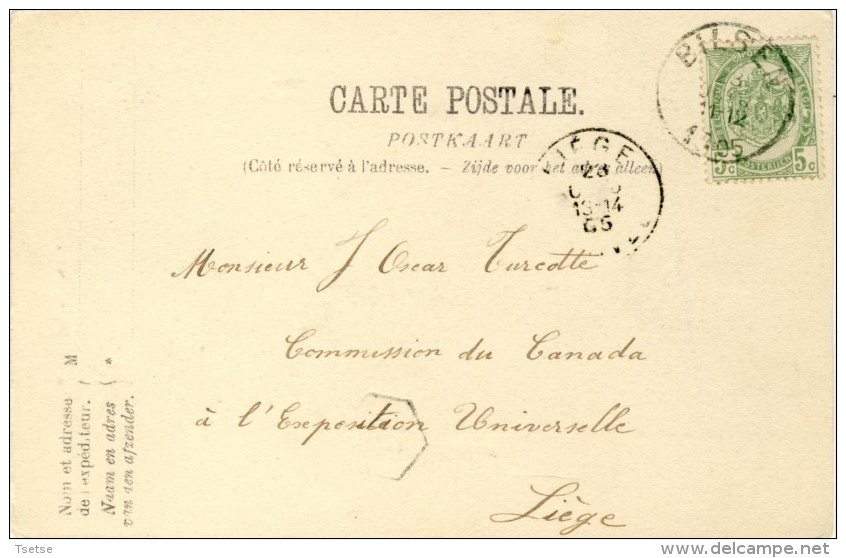 BILSEN
12
1905
5c 5c
CARTE POSTALE.
POSTKAART
(Côté réservé à l'adresse. – Zijde voor het adres alleen)
LIÉGE
13-14
Monsieur J Oscar Turcotte
Commission du Canada
à l'Exposition Universelle
Liège
Nom et adresse
de l'expéditeur. M
Naam en adres
van den afzender.
Tsetse
delcampe.net